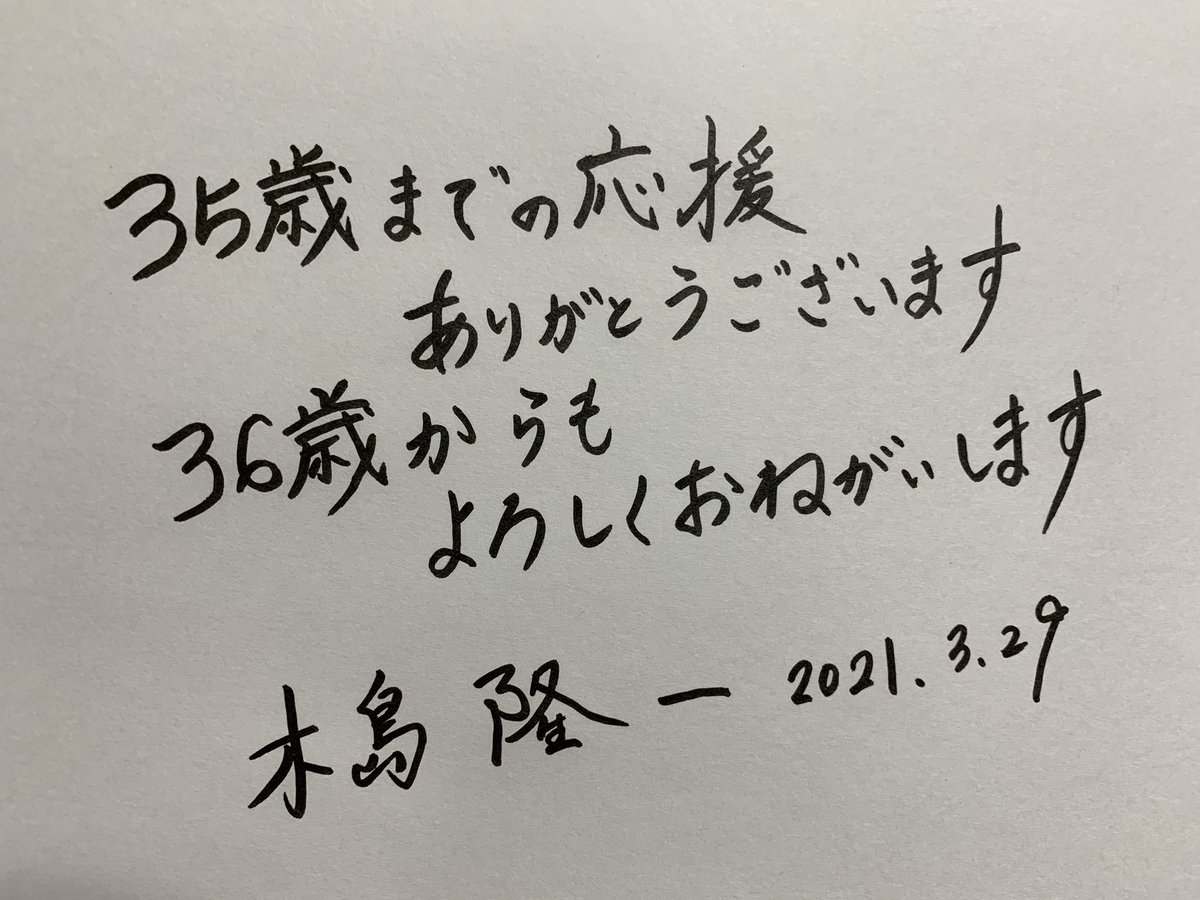 35歳までの応援
ありがとうございます
36歳からも
よろしくおねがいします
木島隆一 2021.3.29